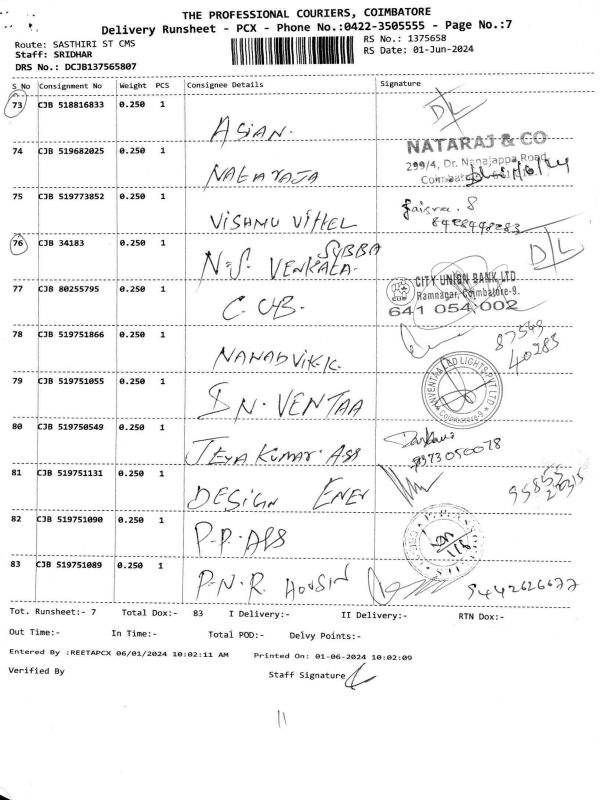 THE PROFESSIONAL COURIERS, COIMBATORE
Delivery Runsheet - PCX - Phone No.:0422-3505555 - Page No.:7
Route: SASTHIRI ST CMS
RS No.: 1375658
Staff: SRIDHAR
RS Date: 01-Jun-2024
DRS No.: DCJB137565807
S_No Consignment No Weight PCS Consignee Details Signature
73 CJB 518816833 0.250 1
D/L
ASIAN.
NATARAJ & CO
74 CJB 519682025 0.250 1
299/4, Dr. Nanajappa Road
NAGARAJA
75 CJB 519773852 0.250 1
VISHNU VITTEL
8428498283
76 CJB 34183 0.250 1
D/L
SUBBA
N.S. VENKATA.
77 CJB 80255795 0.250 1
CITY UNION BANK LTD
Ramnagar, Coimbatore-9.
C.U.B.
641 054 002
78 CJB 519751866 0.250 1
87549
40285
79 CJB 519751055 0.250 1
Coimbatore-9
80 CJB 519750549 0.250 1
JEYA KUMAR. ASS
9373050078
81 CJB 519751131 0.250 1
DESIGN ENER
82 CJB 519751090 0.250 1
P.P. ASS
83 CJB 519751089 0.250 1
P.N.R. HOUSIN
9442626677
Tot. Runsheet:- 7 Total Dox:- 83 I Delivery:- II Delivery:- RTN Dox:-
Out Time:- In Time:- Total POD:- Delvy Points:-
Entered By :REETAPCX 06/01/2024 10:02:11 AM Printed On: 01-06-2024 10:02:09
Verified By Staff Signature
11